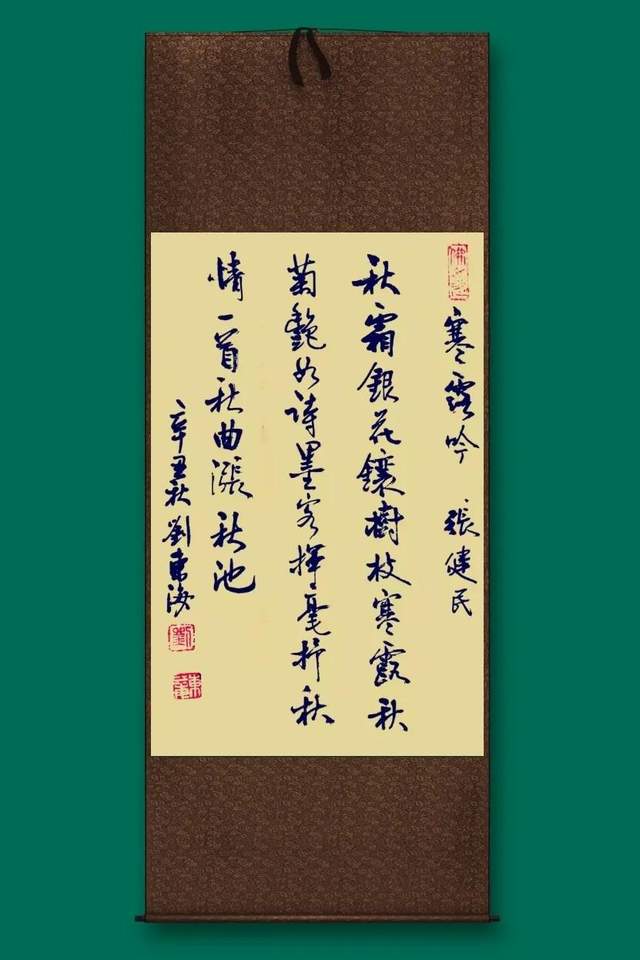 寒露吟 張健民
秋霜銀花鑲樹枝寒露秋
菊艷如詩墨客揮毫抒秋
情一首秋曲漲秋池
辛丑秋劉東海